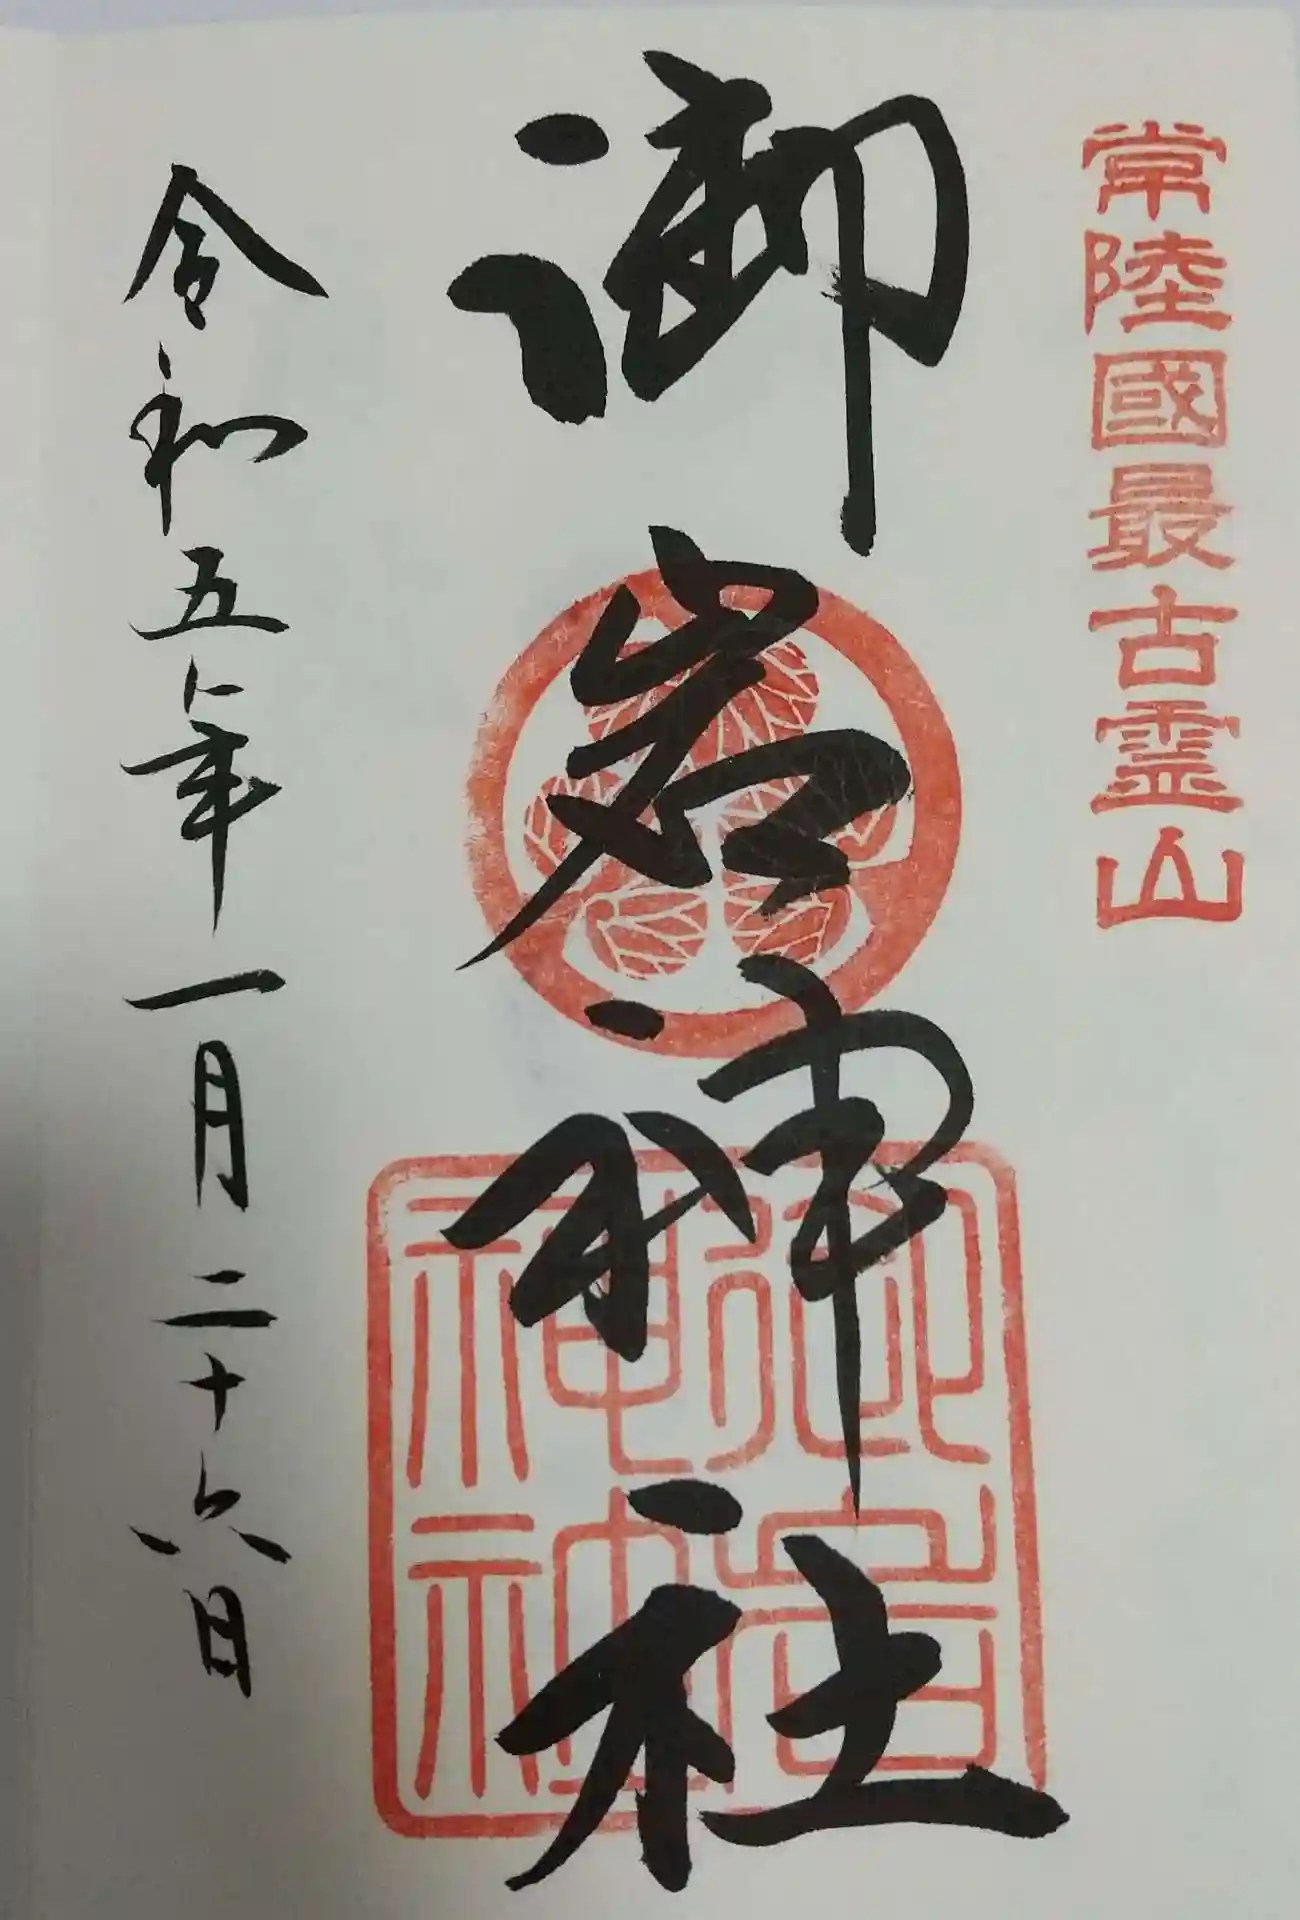 常陸國最古霊山
御岩神社
御岩神社
令和五年一月二十六日